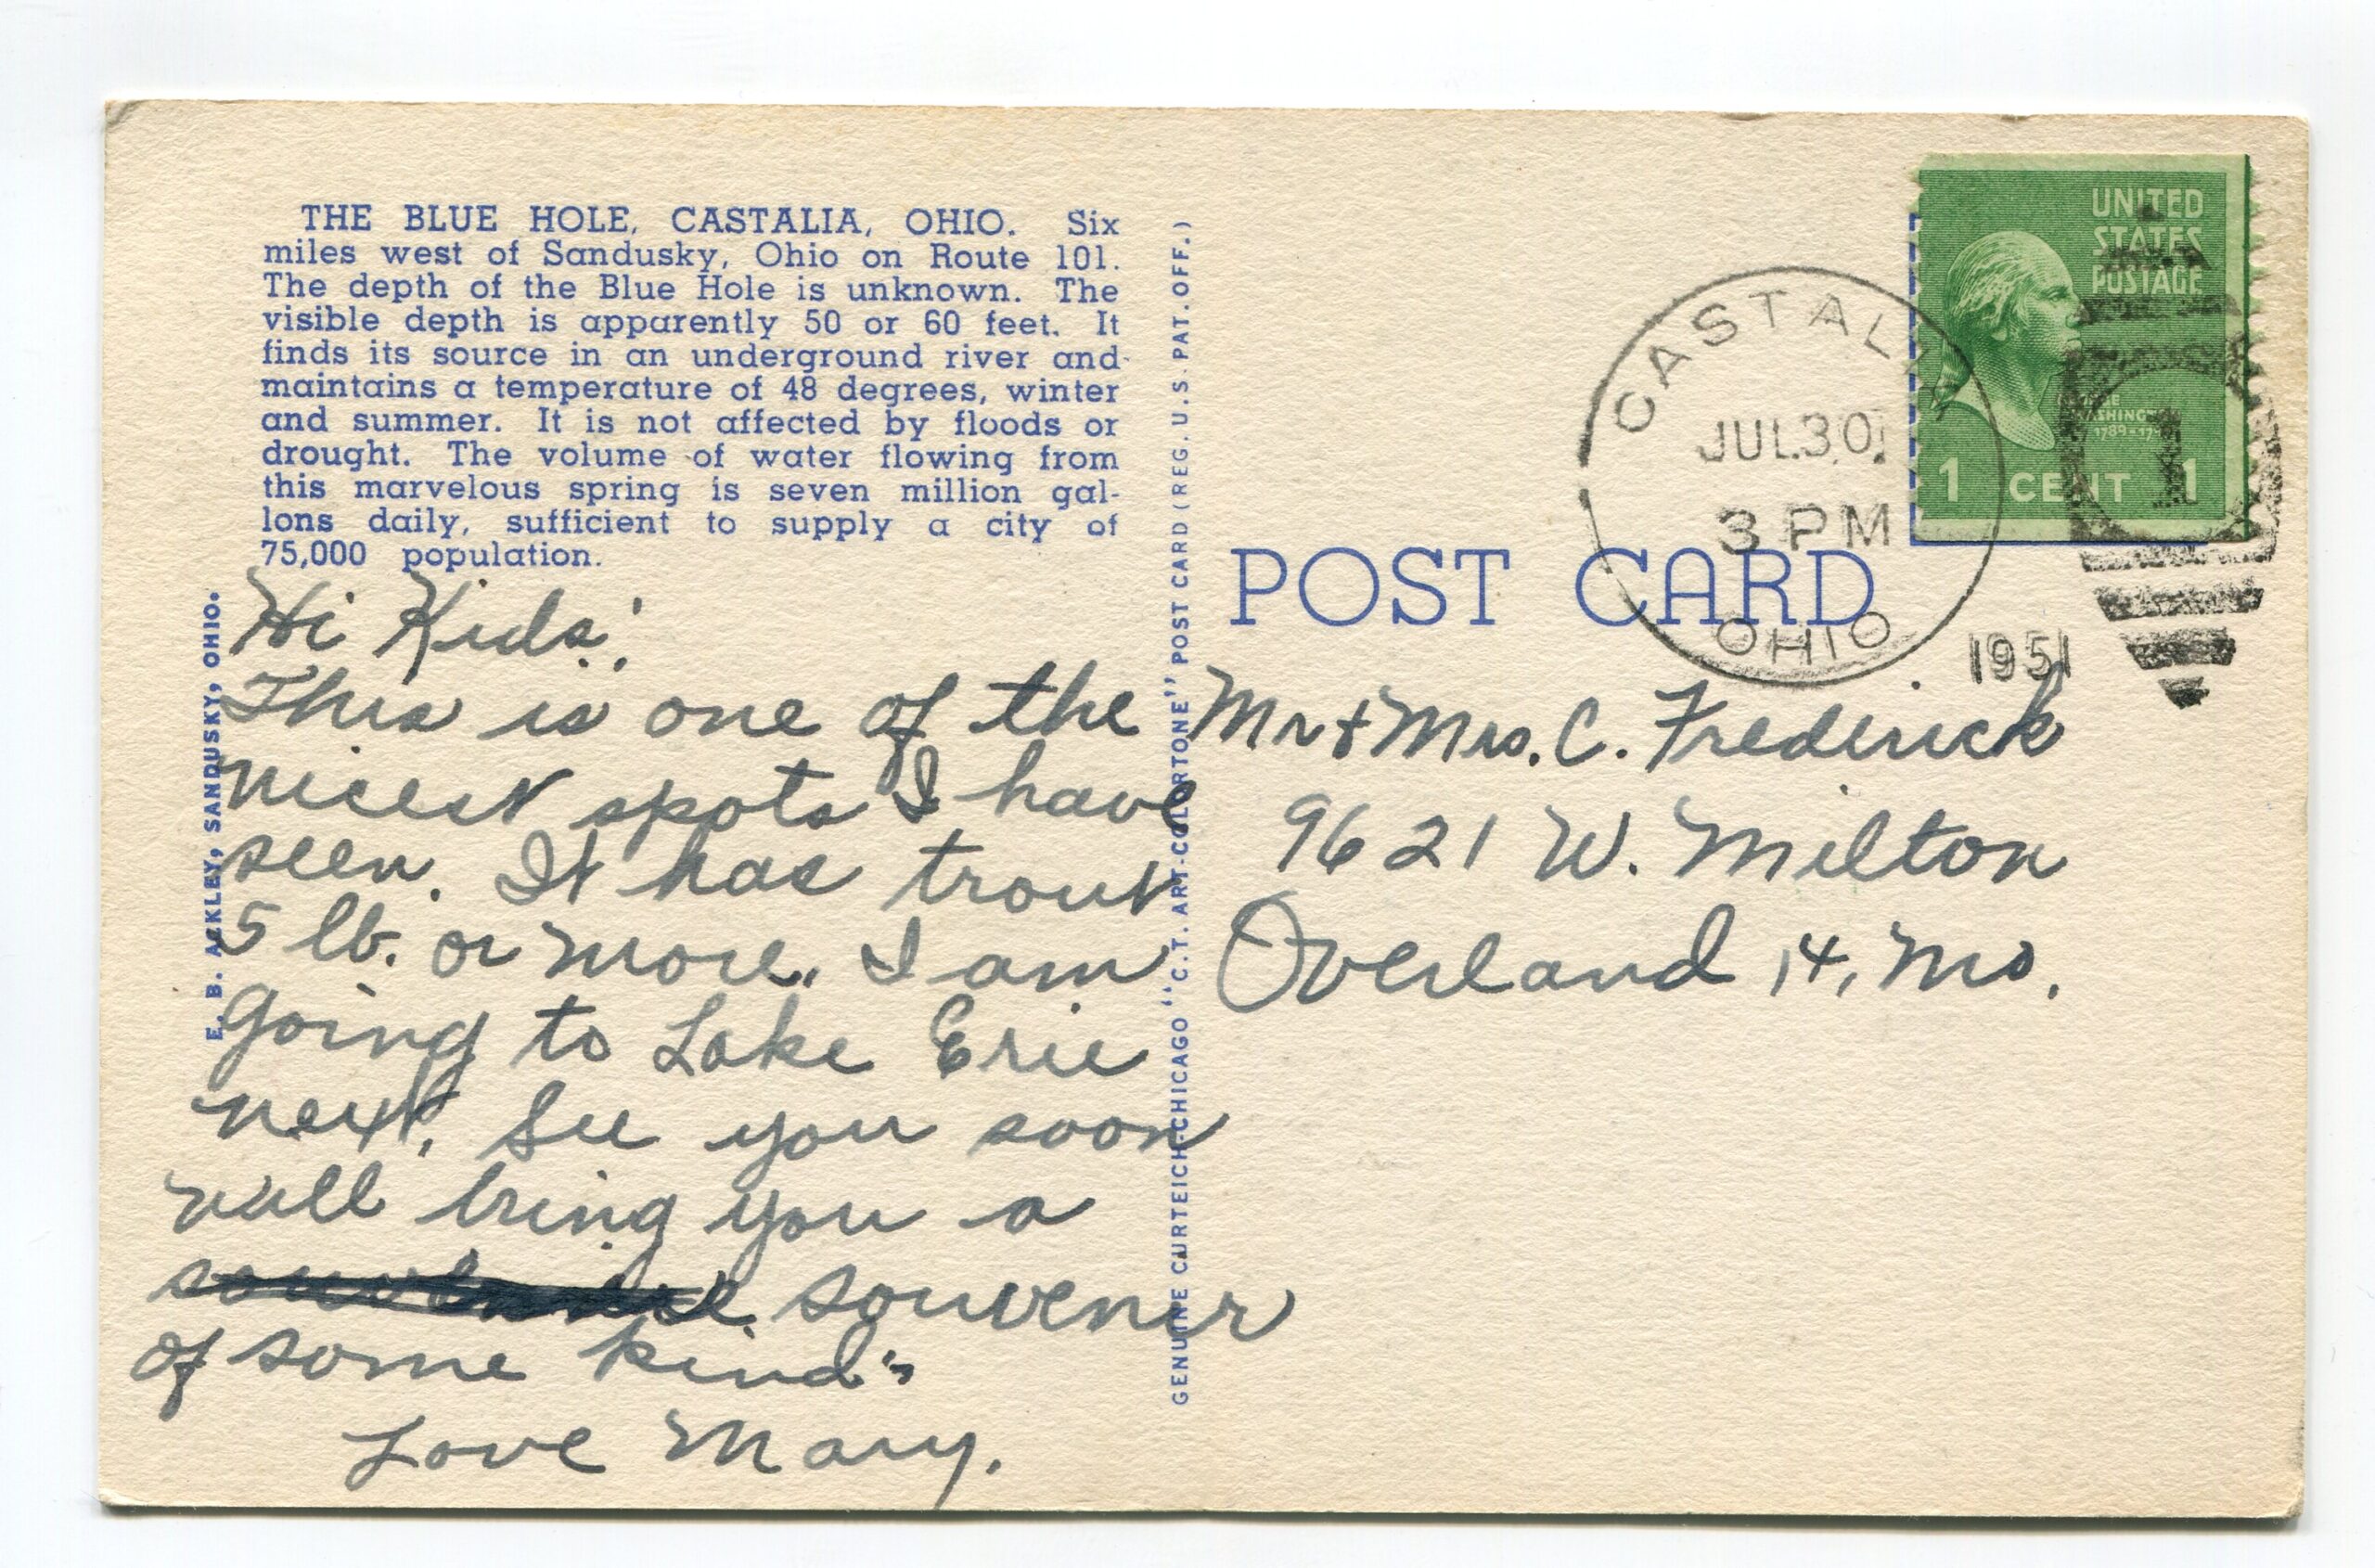 THE BLUE HOLE, CASTALIA, OHIO. Six
miles west of Sandusky, Ohio on Route 101.
The depth of the Blue Hole is unknown. The
visible depth is apparently 50 or 60 feet. It
finds its source in an underground river and
maintains a temperature of 48 degrees, winter
and summer. It is not affected by floods or
drought. The volume of water flowing from
this marvelous spring is seven million gal-
lons daily, sufficient to supply a city of
75,000 population.
E. B. ACKLEY, SANDUSKY, OHIO.
Hi Kids!
This is one of the
nicest spots I have
seen. It has trout
5 lb. or more. I am
going to Lake Erie
next. See you soon
will bring you a
souvenir
of some kind.
Love Mary.
GENUINE CURTEICH-CHICAGO "C.T. ART-COLORTONE" POST CARD (REG. U.S. PAT. OFF.)
POST CARD
CASTALIA
JUL 30
3 PM
OHIO
1951
UNITED
STATES
POSTAGE
1 CENT 1
Mr & Mrs. C. Frederick
9621 W. Milton
Overland 14, Mo.